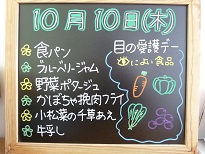 10月10日(木)
食パン
ブルーベリージャム
野菜ポタージュ
かぼちゃ挽肉フライ
小松菜の千草あえ
牛乳
目の愛護デー
目によい食品